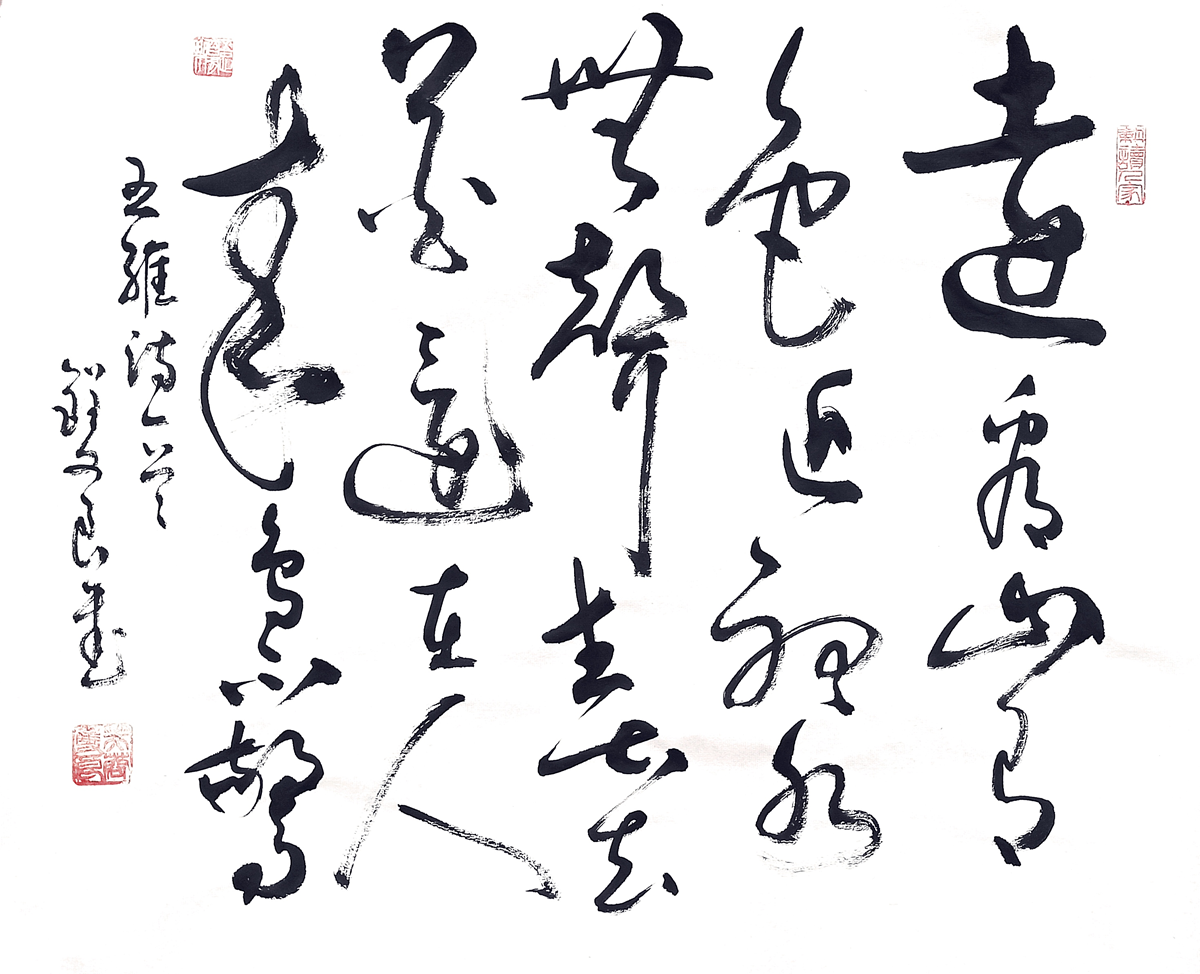 遠看山有
色近聽水
無聲春去
花還在人
來鳥不驚
王維詩一首
文良書